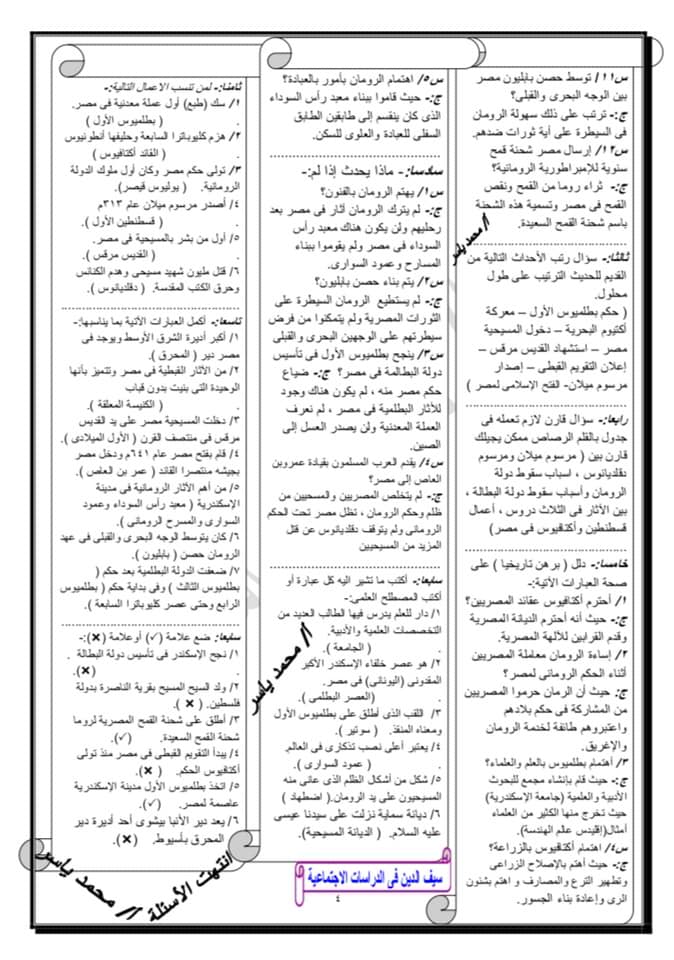 س١١/ توسط حصن بابليون مصر
بين الوجه البحرى والقبلى؟
ج:- ترتب على ذلك سهولة الرومان
فى السيطرة على أية ثورات ضدهم.
س١٢/ إرسال مصر شحنة قمح
سنوية للإمبراطورية الرومانية؟
ج:- ثراء روما من القمح ونقص
القمح فى مصر وتسمية هذه الشحنة
باسم شحنة القمح السعيدة.
ثالثا:- سؤال رتب الأحداث التالية من
القديم للحديث الترتيب على طول
محلول.
( حكم بطلميوس الأول – معركة
أكتيوم البحرية – دخول المسيحية
مصر – استشهاد القديس مرقس –
إعلان التقويم القبطى – إصدار
مرسوم ميلان- الفتح الإسلامى لمصر )
رابعا:- سؤال قارن لازم تعمله فى
جدول بالقلم الرصاص ممكن يجيلك
قارن بين ( مرسوم ميلان ومرسوم
دقلديانوس ، اسباب سقوط دولة
الرومان وأسباب سقوط دولة البطالة ،
بين الأثار فى الثلاث دروس ، أعمال
قسطنطين وأكتافيوس فى مصر)
خامسا:- دلل ( برهن تاريخيا ) على
صحة العبارات الأتية:-
١/ أحترم أكتافيوس عقائد المصريين؟
ج:- حيث أنه أحترم الديانة المصرية
وقدم القرابين للألهة المصرية.
٢/ إساءة الرومان معاملة المصريين
أثناء الحكم الرومانى لمصر؟
ج:- حيث أن الرمان حرموا المصريين
من المشاركة فى حكم بلادهم
واعتبروهم طائفة لخدمة الرومان
والإغريق.
٣/ أهتمام بطلميوس بالعلم والعلماء؟
ج:- حيث قام بإنشاء مجمع للبحوث
الأدبية والعلمية (جامعة الإسكندرية)
حيث تخرج منها الكثير من العلماء
أمثال(إقليدس عالم الهندسة).
س٤/ اهتمام أكتافيوس بالزراعة؟
ج:- حيث أهتم بالإصلاح الزراعى
وتطهير الترع والمصارف و اهتم بشئون
الرى وإعادة بناء الجسور.
س٥/ اهتمام الرومان بأمور بالعبادة؟
ج:- حيث قاموا ببناء معبد رأس السوداء
الذى كان ينقسم إلى طابقين الطابق
السفلى للعبادة والعلوى للسكن.
سادسا:- ماذا يحدث إذا لم:-
س١/ يهتم الرومان بالفنون؟
ج:- لم يترك الرومان أثار فى مصر بعد
رحليهم ولن يكون هناك معبد رأس
السوداء فى مصر ولم يقوموا ببناء
المسارح وعمود السوارى.
س٢/ يتم بناء حصن بابليون؟
ج:- لم يستطيع الرومان السيطرة على
الثورات المصرية ولم يتمكنوا من فرض
سيطرتهم على الوجهين البحرى والقبلى
س٣/ ينجح بطلميوس الأول فى تأسيس
دولة البطالمة فى مصر؟ ج:- ضياع
حكم مصر منه ، لم يكون هناك وجود
للأثار البطلمية فى مصر ، لم نعرف
العملة المعدنية ولن يصدر العسل إلى
الصين.
س٤/ يقدم العرب المسلمون بقيادة عمروبن
العاص إلى مصر؟
ج:- لم يتخلص المصريين والمسحيين من
ظلم وحكم الرومان ، تظل مصر تحت الحكم
الرومانى ولم يتوقف دقلديانوس عن قتل
المزيد من المسيحيين
سابعا:- أكتب ما تشير اليه كل عبارة أو
أكتب المصطلح العلمى:-
١/ دار للعلم يدرس فيها الطالب العديد من
التخصصات العلمية والأدبية.
( الجامعة ).
٢/ هو عصر خلفاء الإسكندر الأكبر
المقدونى (اليونانى) فى مصر.
(العصر البطلمى ).
٣/ اللقب الذى أطلق على بطلميوس الأول
ومعناه المنقذ. ( سوتير ).
٤/ يعتبر أعلى نصب تذكارى فى العالم.
( عمود السوارى ).
٥/ شكل من أشكال الظلم الذى عانى منه
المسيحيون على يد الرومان.( اضطهاد )
٦/ ديانة سماية نزلت على سيدنا عيسى
عليه السلام. ( الديانة المسيحية).
ثامنا:- لمن تنسب الاعمال التالية:-
١/ سك (طبع) أول عملة معدنية فى مصر.
( بطلميوس الأول )
٢/ هزم كليوباترا السابعة وحليفها أنطونيوس
( القائد أكتافيوس )
٣/ تولى حكم مصر وكان أول ملوك الدولة
الرومانية. ( يوليوس قيصر).
٤/ أصدر مرسوم ميلان عام ٣١٣م
( قسطنطين الأول ).
٥/ أول من بشر بالمسيحية فى مصر.
( القديس مرقس ).
٦/ قتل مليون شهيد مسيحى وهدم الكنائس
وحرق الكتب المقدسة. ( دقلديانوس ).
تاسعا:- أكمل العبارات الآتية بما يناسبها:-
١/ أكبر أديرة الشرق الأوسط ويوجد فى
مصر دير ( المحرق ).
٢/ من الأثار القبطية فى مصر وتتميز بأنها
الوحيدة التى بنيت بدون قباب
( الكنيسة المعلقة ).
٣/ دخلت المسيحية مصر على يد القديس
مرقس فى منتصف القرن ( الأول الميلادى ).
٤/ قام بفتح مصر عام ٦٤١م ودخل مصر
بجيشه منتصرا القائد ( عمر بن العاص ).
٥/ من أهم الأثار الرومانية فى مدينة
الإسكندرية ( معبد رأس السوداء وعمود
السوارى والمسرح الرومانى ).
٦/ كان يتوسط الوجه البحرى والقبلى فى عهد
الرومان حصن ( بابليون ).
٧/ ضعفت الدولة البطلمية بعد حكم (
بطلميوس الثالث ) وفى بداية حكم ( بطلميوس
الرابع وحتى عصر كليوباترا السابعة ).
سابعا:- ضع علامة (✓) أوعلامة (✗):-
١/ نجح الإسكندر فى تأسيس دولة البطالة .
(✗).
٢/ ولد السيح المسيح بقرية الناصرة بدولة
فلسطين. ( ✗ ).
٣/ أطلق على شحنة القمح المصرية لروما
شحنة القمح السعيدة. (✓).
٤/ يبدأ التقويم القبطى فى مصر منذ تولى
أكتافيوس الحكم. ( ✗).
٥/ اتخذ بطلميوس الأول مدينة الإسكندرية
عاصمة لمصر. (✓).
٦/ يعد دير الأنبا بيشوى أحد أديرة دير
المحرق بأسيوط. (✗).
انتهت الأسئلة
أ/ محمد ياسر
أ/ محمد ياسر
أ/ محمد ياسر
سيف الدين فى الدراسات الاجتماعية
٤